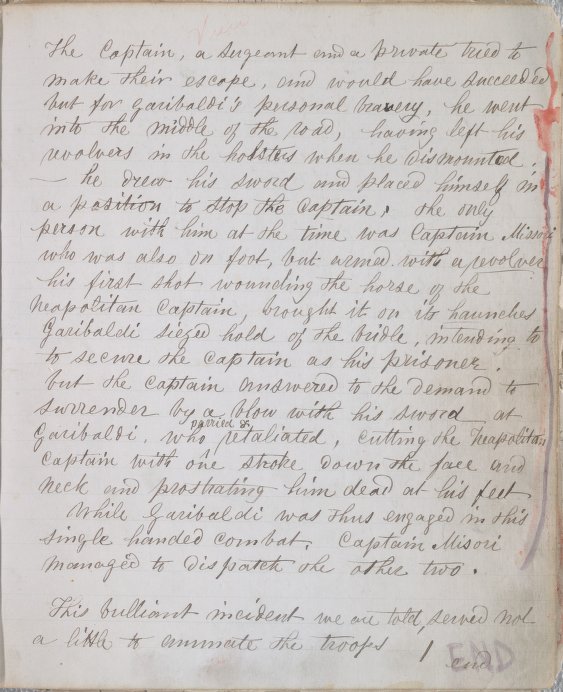 The Captain, a Sergeant and a Private tried to
make their escape, and would have succeeded
but for Garibaldi's personal bravery, he went
into the middle of the road, having left his
revolvers in the holsters when he dismounted.
— he drew his sword and placed himself in
a position to stop the Captain. The only
person with him at the time was Captain Missori
who was also on foot, but armed with a revolver
his first shot wounding the horse of the
Neapolitan Captain, brought it on its haunches
Garibaldi siezed hold of the bridle, intending to
to secure the Captain as his prisoner.
but the Captain answered to the demand to
surrender by a blow with his sword at
parried &
Garibaldi, who retaliated, cutting the Neapolitan
Captain with one stroke down the face and
neck and prostrating him dead at his feet
While Garibaldi was thus engaged in this
single handed combat, Captain Misori
managed to dispatch the other two.
This brilliant incident we are told, served not
a little to animate the troops
END
end